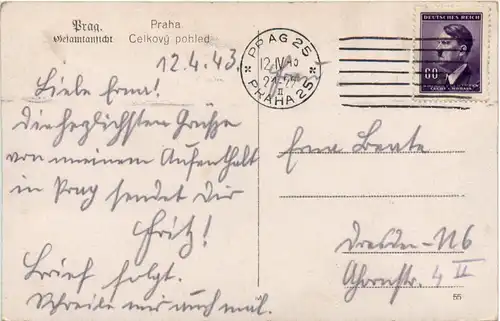 Prag. Praha
Gesamtansicht Celkový pohled
12.4.43.
PRAG 25
12.IV.43
21-22
II
PRAHA 25
DEUTSCHES REICH
60
Liebe Erna!
Die herzlichsten Grüße
von meinem Aufenthalt
in Prag sendet Dir
Fritz!
Brief folgt.
Schreibe mir auch mal.
Erna Beate
Dresden-N6
Ahornstr. 4 II
55